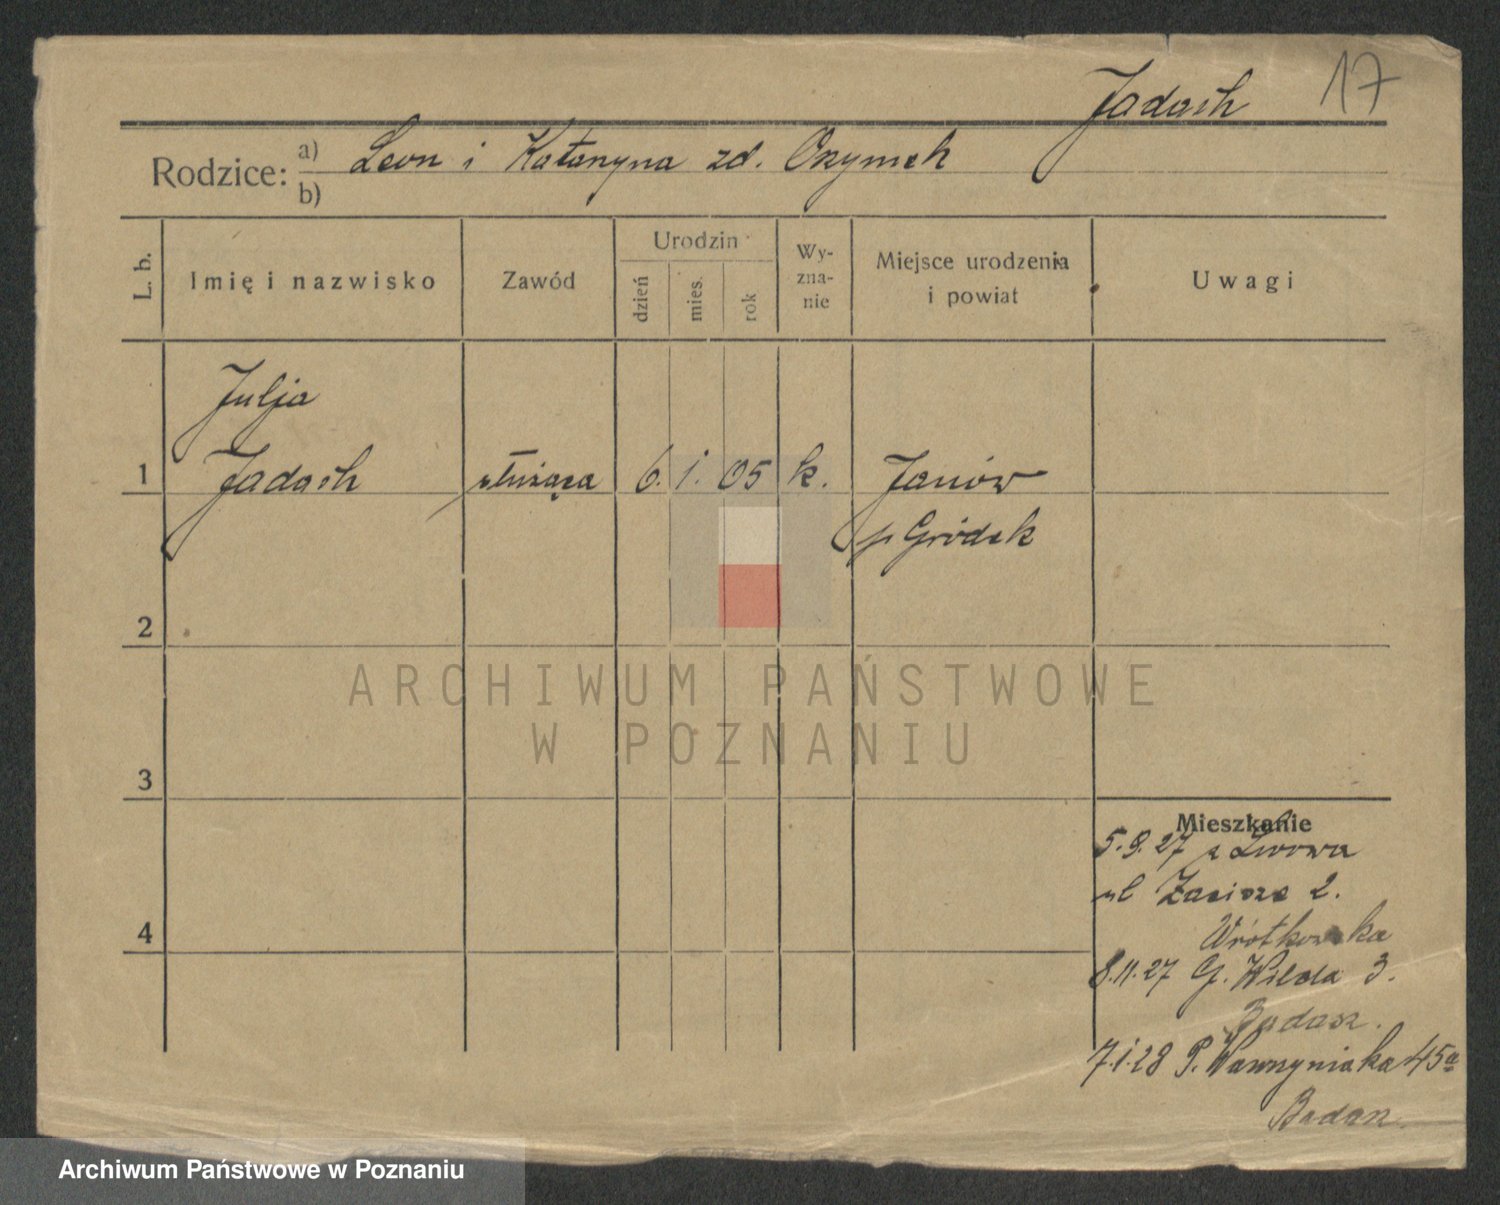 Jadach 17
Rodzice: a) Leon i Katarzyna zd.
b)
L. b.
Imię i nazwisko
Zawód
Urodzin
dzień
mies.
rok
Wy-
zna-
nie
Miejsce urodzenia
i powiat
Uwagi
Julja
1 Jadach służąca 6. 1. 05 k. Janów
p Gródek
2
3
4
Mieszkanie
5.9.27 z Lwowa
ul Zacisze 2.
8.11.27 G. Wilda 3.
7.1.28 P. Wawrzyniaka 45a
ARCHIWUM PAŃSTWOWE
W POZNANIU
Archiwum Państwowe w Poznaniu